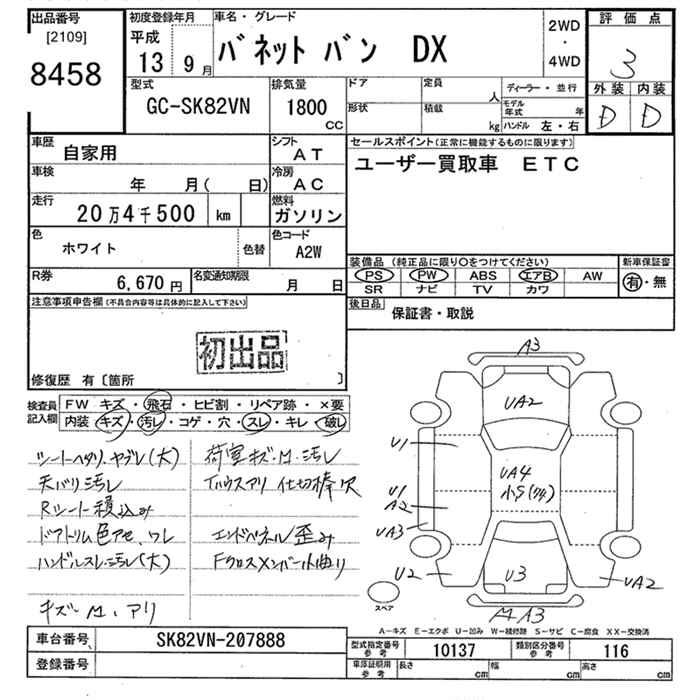 出品番号
[2109]
8458
初度登録年月
平成
13 9月
車名・グレード
バネット バン DX
2WD
・
4WD
評価点
3
外装 内装
D D
型式
GC-SK82VN
排気量
1800
CC
ドア
定員
人
形状
積載
kg
ディーラー・並行
モデル年式 年
ハンドル 左・右
車歴
自家用
シフト
AT
車検
年 月( 日)
冷房
AC
走行
20万4千500 km
燃料
ガソリン
色
ホワイト
色替
色コード
A2W
R券
6,670円
名変通知期限
月 日
セールスポイント(正常に機能するものに限ります)
ユーザー買取車 ETC
装備品(純正品に限り○をつけてください)
PS PW ABS エアB AW
SR ナビ TV カワ
新車保証書
有・無
後日品
保証書・取説
注意事項申告欄(不具合内容等は具体的に記入して下さい)
初出品
修復歴 有〔箇所 〕
検査員記入欄
FW キズ・飛石・ヒビ割・リペア跡・×要
内装 キズ・汚レ・コゲ・穴・スレ・キレ・破レ
シートヘタリ、ヤブレ(大)
天バリ汚レ
Rシート積込み
ドアトリム色アセ、ワレ
ハンドルスレ、汚レ(大)
キズ・M、アリ
荷室キズ・M・汚レ
仕切棒穴
エンドパネル歪み
Fクロスメンバー小曲り
A3
UA2
U1
UA4
小S(ワキ)
U1
A2
UA3
U2
U3
UA2
A3
スペア
A-キズ E-エクボ U-凹み W-補修跡 S-サビ C-腐食 XX-交換済
車台番号
SK82VN-207888
登録番号
型式指定番号 参考
10137
類別区分番号 参考
116
車庫証明用 参考
長さ cm 幅 cm 高さ cm